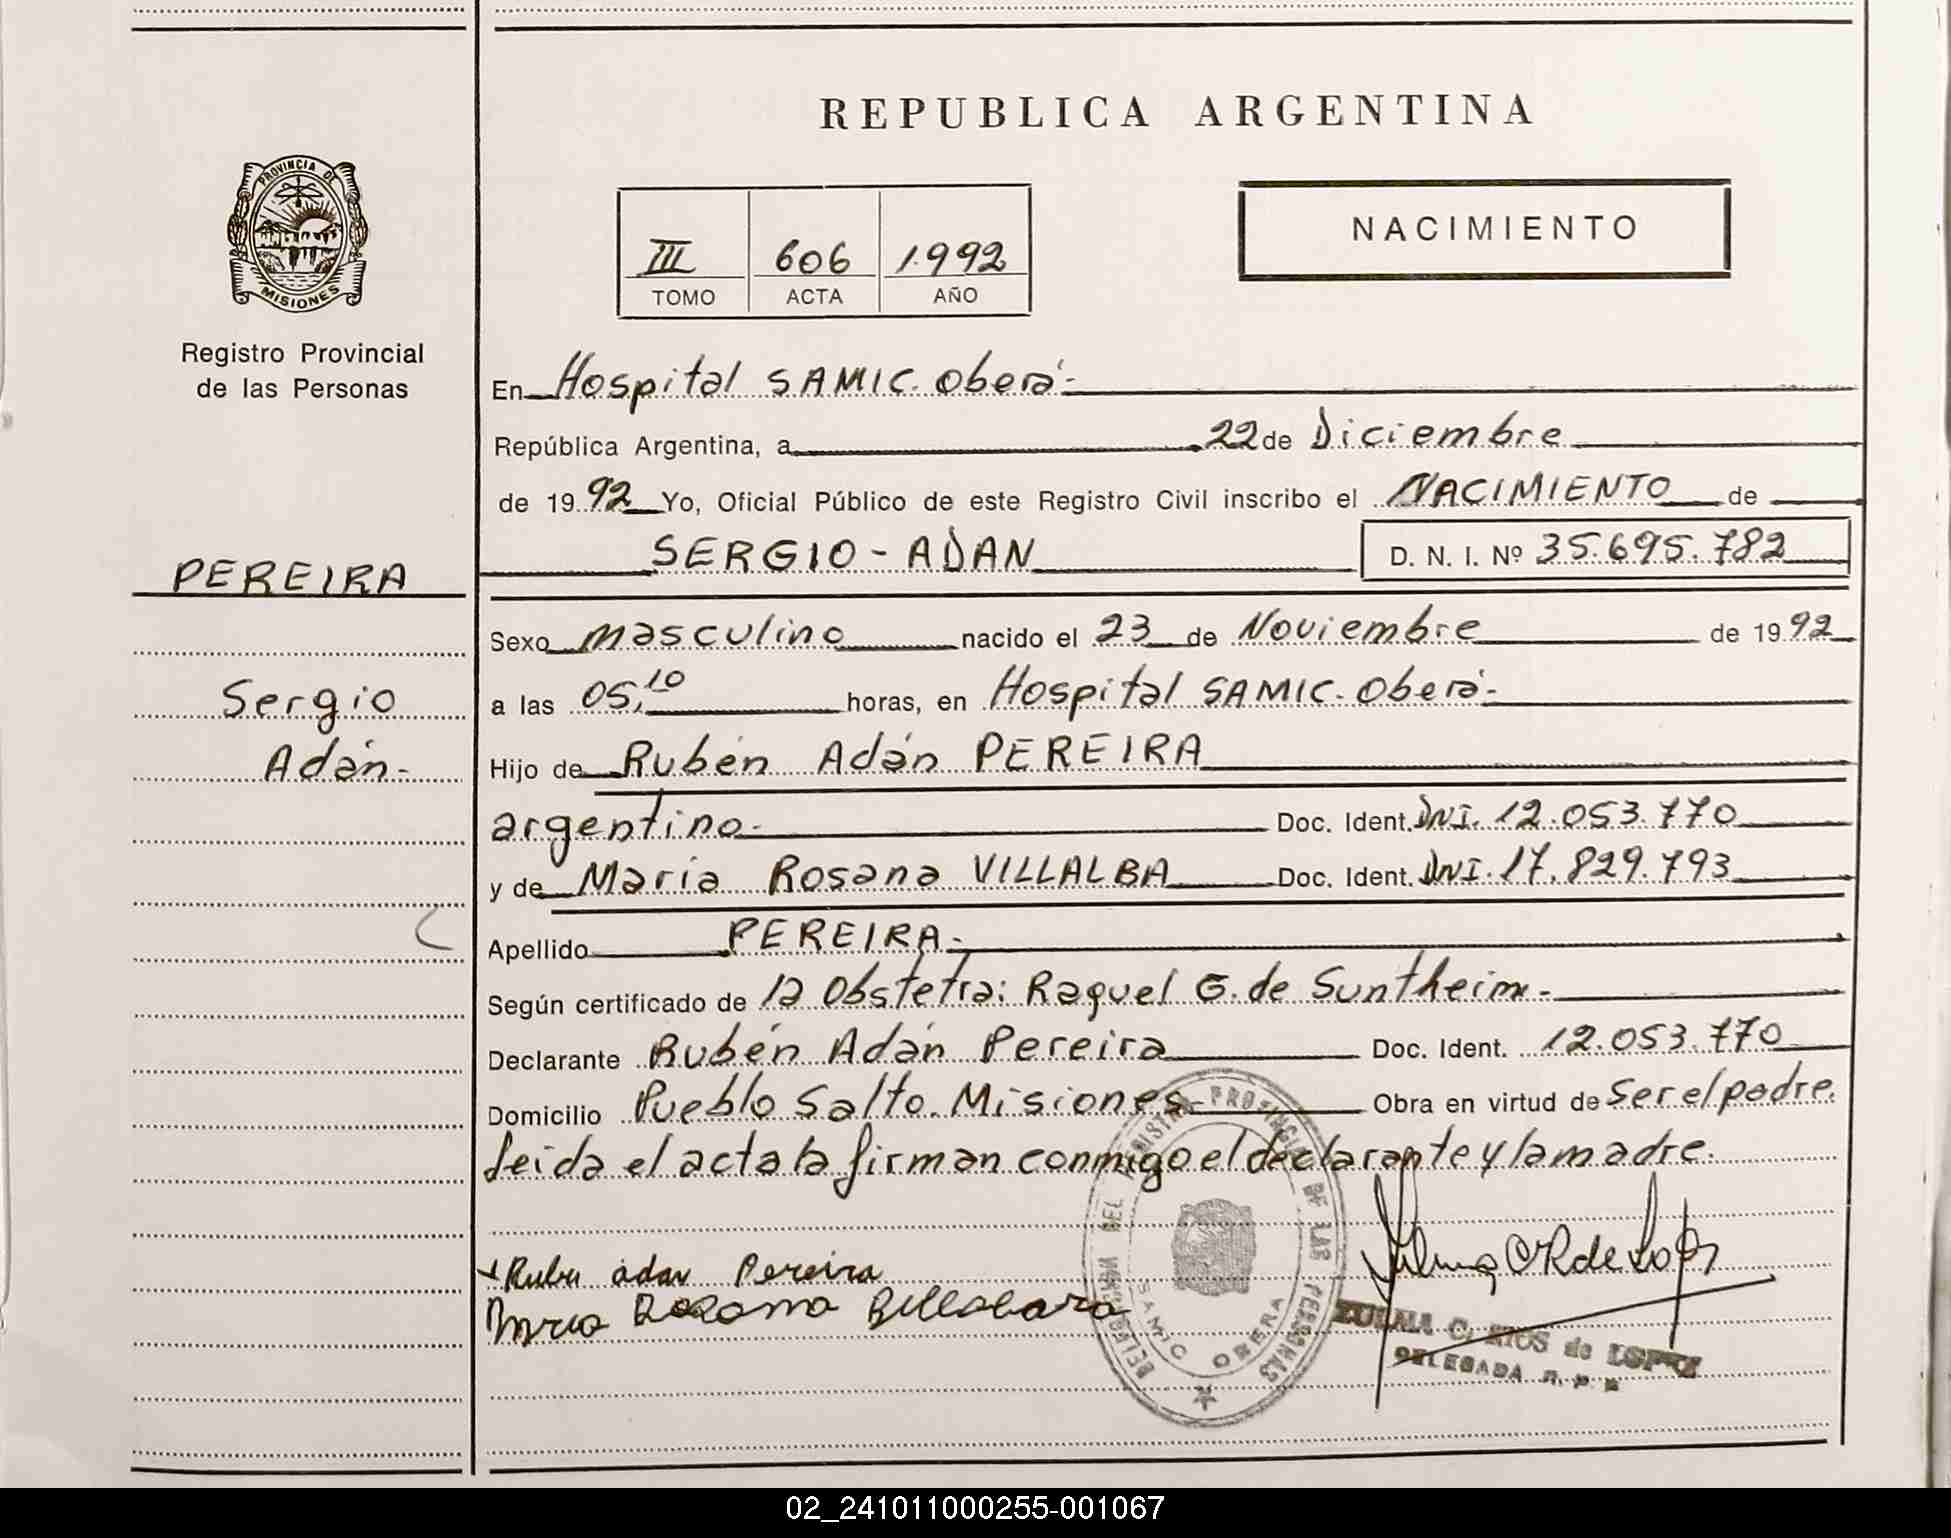 REPUBLICA ARGENTINA
PROVINCIA DE
MISIONES
III 606 1.992
TOMO ACTA AÑO
NACIMIENTO
Registro Provincial
de las Personas
En Hospital SAMIC. Oberá.-
República Argentina, a 22 de Diciembre
de 19 92 Yo, Oficial Público de este Registro Civil inscribo el NACIMIENTO de
SERGIO - ADAN D. N. I. Nº 35.695.782
PEREIRA
Sexo masculino nacido el 23 de Noviembre de 19 92
Sergio
a las 05,10 horas, en Hospital SAMIC. Oberá.-
Adán.-
Hijo de Rubén Adán PEREIRA
argentino.- Doc. Ident. DNI. 12.053.770
y de María Rosana VILLALBA Doc. Ident. DNI. 17.829.793
Apellido PEREIRA.-
Según certificado de la Obstetra: Raquel G. de Suntheim.-
Declarante Rubén Adán Pereira Doc. Ident. 12.053.770
Domicilio Pueblo Salto. Misiones.- Obra en virtud de Ser el padre.
Leida el acta la firman conmigo el declarante y la madre.
DEL REGISTRO PROVINCIAL DE LAS PERSONAS
SAMIC OBERA
Pereira
ZULMA C. RIOS de LOPEZ
DELEGADA R. P. P.
02_241011000255-001067